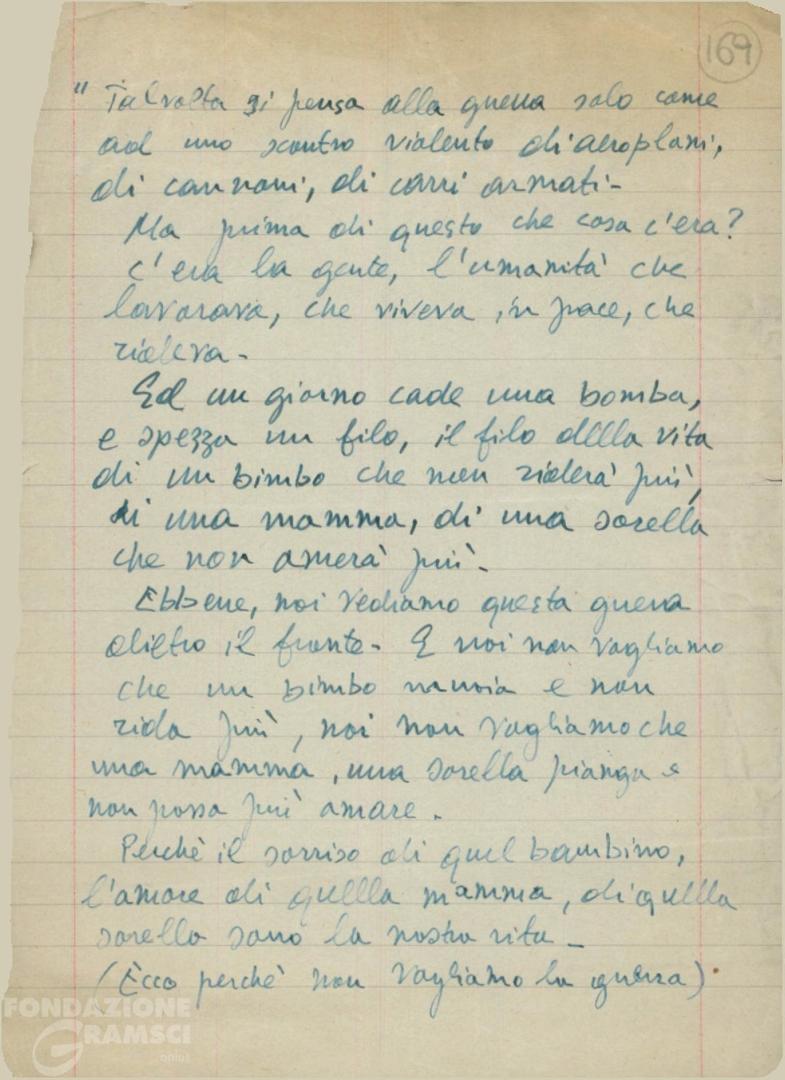 169
" Talvolta si pensa alla guerra solo come
ad uno scontro violento di aeroplani,
di cannoni, di carri armati -
Ma prima di questo che cosa c'era?
C'era la gente, l'umanità che
lavorava, che viveva in pace, che
rideva -
Ed un giorno cade una bomba,
e spezza un filo, il filo della vita
di un bimbo che non riderà più,
di una mamma, di una sorella
che non amerà più -
Ebbene, noi vediamo questa guerra
dietro il fronte - E noi non vogliamo
che un bimbo muoia e non
rida più, noi non vogliamo che
una mamma, una sorella pianga e
non possa più amare.
Perchè il sorriso di quel bambino,
l'amore di quella mamma, di quella
sorella sono la nostra vita -
(Ecco perchè non vogliamo la guerra).
FONDAZIONE
GRAMSCI
onlus